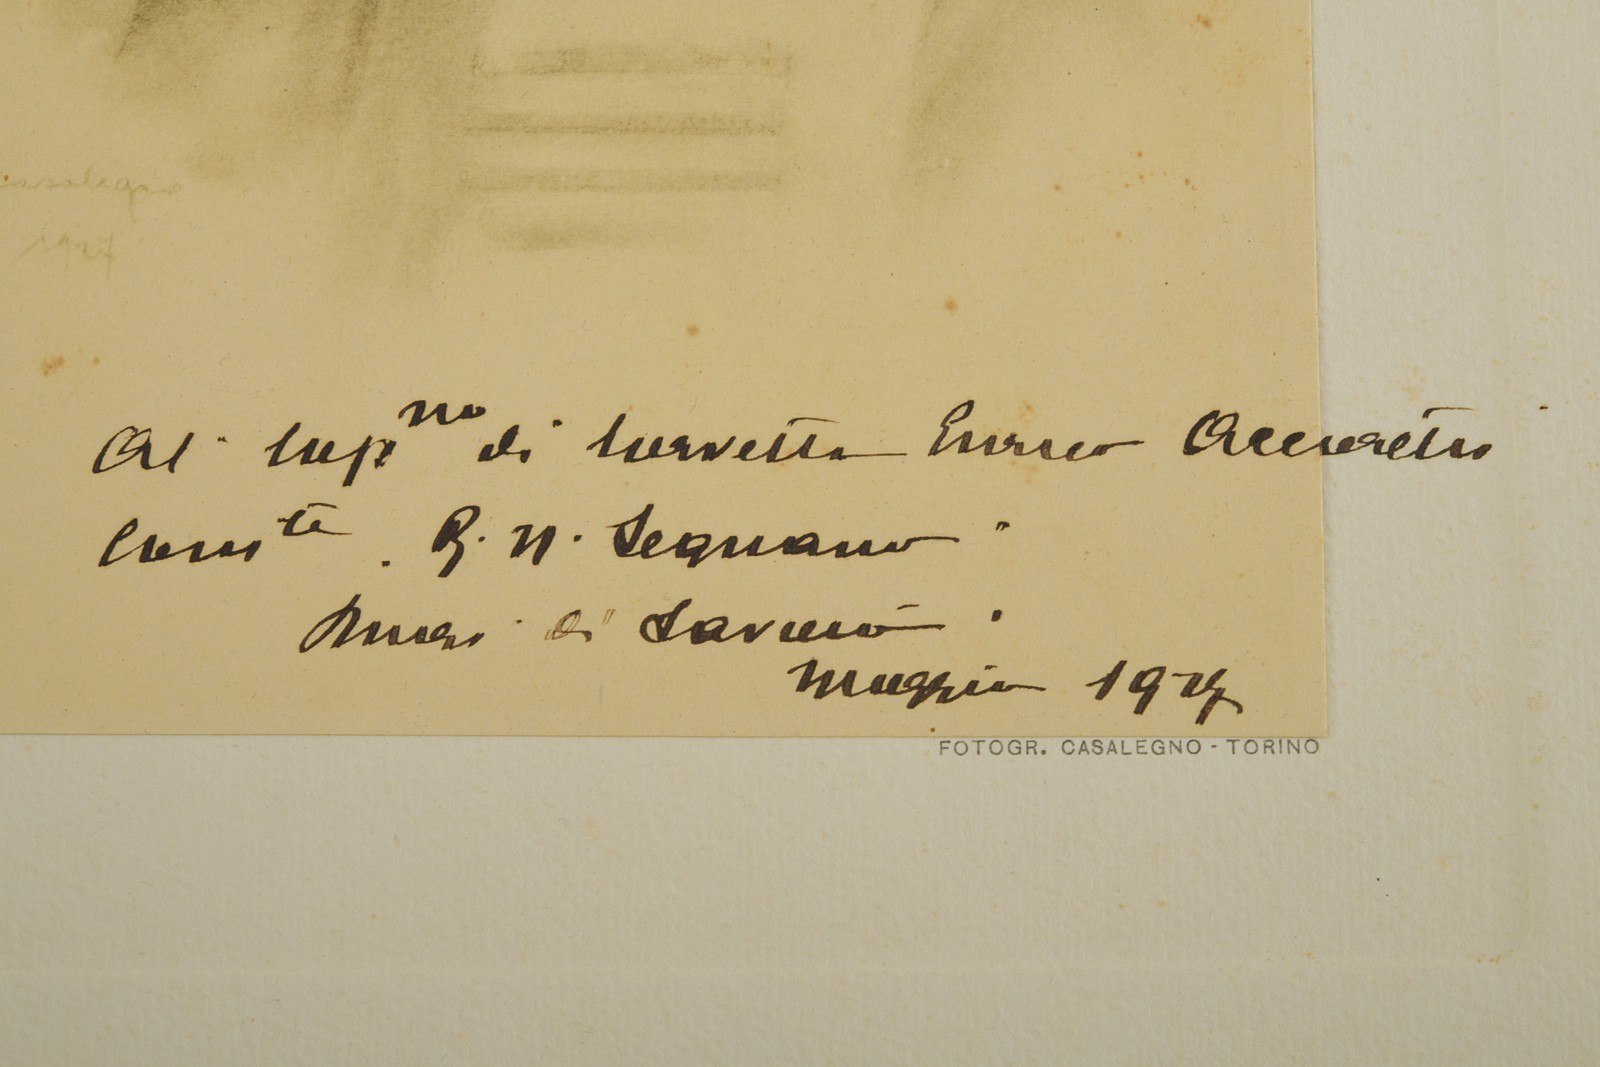 Casalegno
1927
Al Cap.no di Corvetta Enrico Accorretti
Com.te R. N. Legnano
di Savoia
Maggio 1927
FOTOGR. CASALEGNO - TORINO